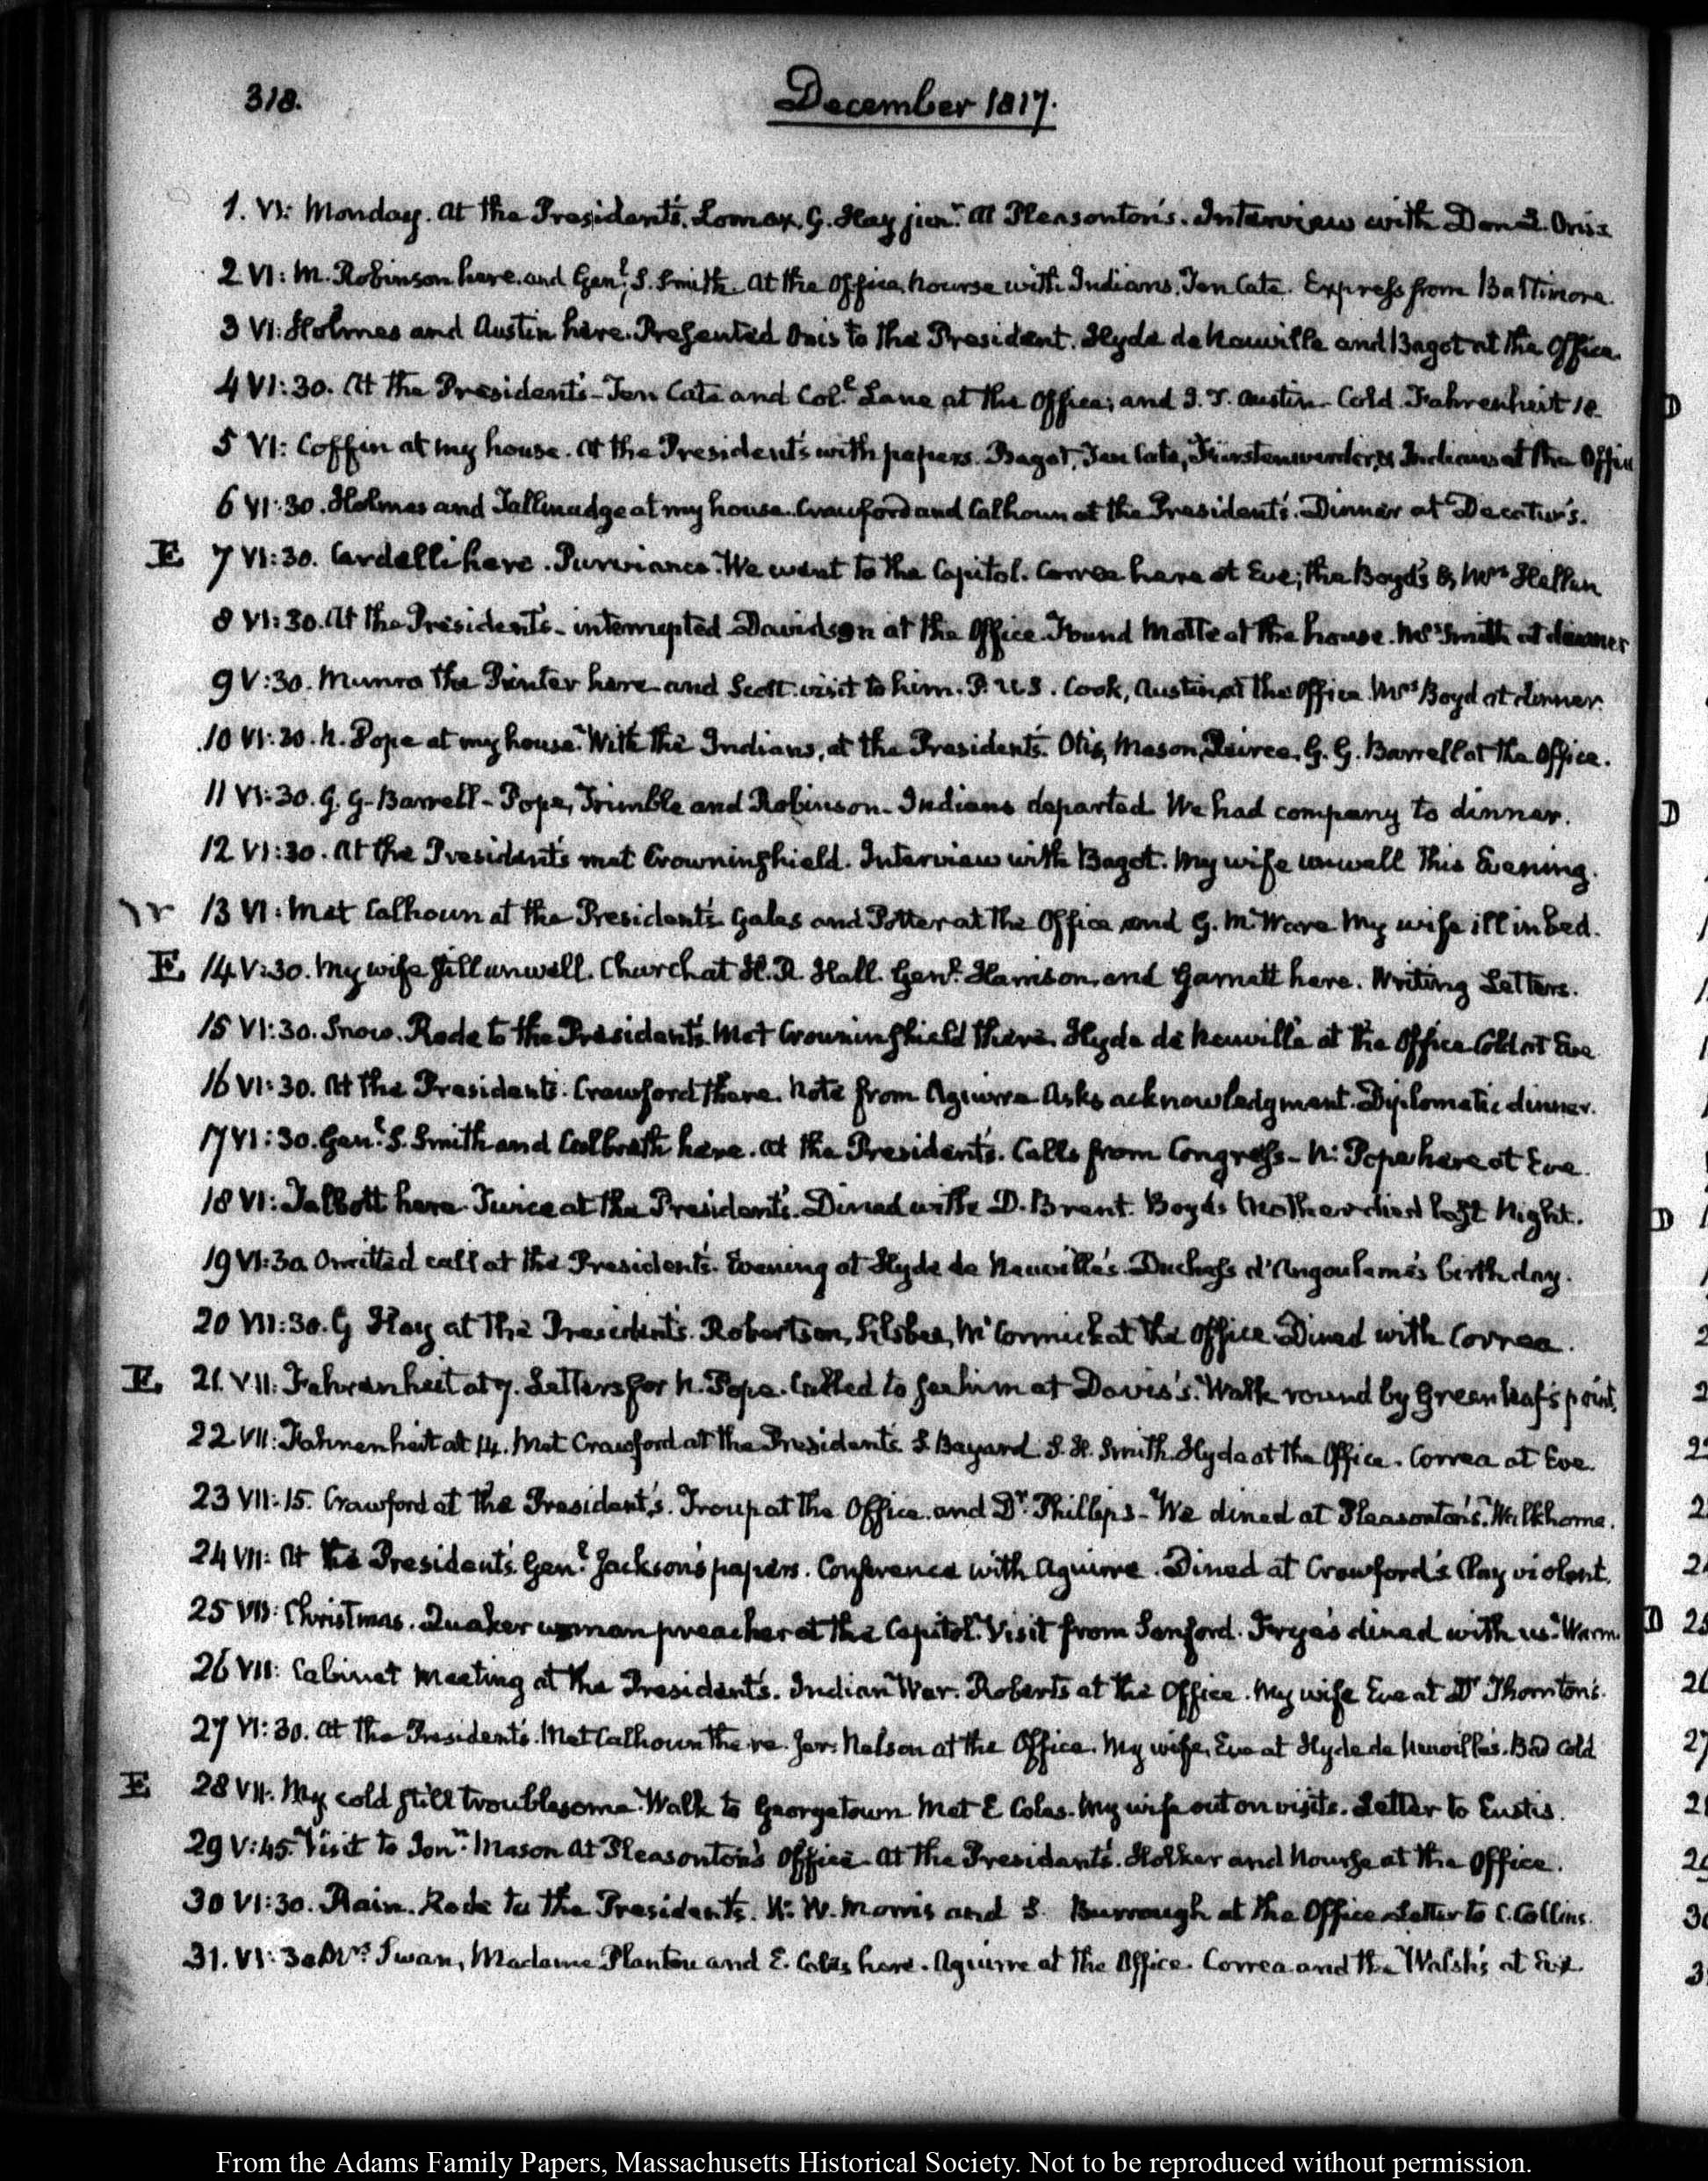 318.
December 1817.
1. VI: Monday. At the President's. Lomax, G. Hay junr. At Pleasonton's. Interview with Don L. Onis
2 VI: M. Robinson here and Genl. S. Smith. At the Office, Nourse with Indians. Ten Cate. Express from Baltimore.
3 VI: Holmes and Austin here. Presented Onis to the President. Hyde de Neuville and Bagot at the Office.
4 VI:30. At the President's – Ten Cate and Coll. Lane at the Office; and I. T. Austin. Cold. Fahrenheit 18
5 VI: Coffin at my house. At the President's with papers. Bagot, Ten Cate, Fürstenwerder, & Indians at the Office
6 VI:30. Holmes and Tallmadge at my house. Crawford and Calhoun at the President's. Dinner at Decatur's.
E 7 VI:30. Cardelli here. Purviance. We went to the Capitol. Correa here at Eve; the Boyd's & Mrs Hellen
8 VI:30. At the President's – interrupted. Davidson at the Office. Found Motte at the house. Mrs Smith at dinner
9 V:30. Munro the Printer here and Scott. visit to him. P. U.S. Cook, Austin, at the Office. Mrs Boyd at dinner.
10 VI:30. N. Pope at my house. With the Indians, at the President's. Otis, Mason, Peirce, G. G. Barrell at the Office.
11 VI:30. G. G. Barrell – Pope, Trimble and Robinson. Indians departed. We had company to dinner.
12 VI:30. At the President's met Crowninshield. Interview with Bagot. My wife unwell this Evening.
13 VI: Met Calhoun at the President's. Gales and Potter at the Office, and G. M. Ware. My wife ill in bed.
E 14 V:30. My wife still unwell. Church at H. R. Hall. Genl. Harrison, and Garnett here. Writing Letters.
15 VI:30. Snow. Rode to the President's. Met Crowninshield there. Hyde de Neuville at the Office. Cold at Eve
16 VI:30. At the President's. Crawford there. Note from Aguirre. Asks acknowledgment. Diplomatic dinner.
17 VI:30. Genl. S. Smith and Culbreth here. At the President's. Calls from Congress – N: Pope here at Eve.
18 VI: Talbott here. Twice at the President's. Dined with D. Brent. Boyd's Mother died last Night.
19 VI:30. Omitted call at the President's. Evening at Hyde de Neuville's. Duchess d'Angouleme's birth day.
20 VII:30. G Hay at the President's. Robertson, Silsbee, McCormick at the Office. Dined with Correa.
E. 21. VII: Fahrenheit at 7. Letters for N. Pope. Called to see him at Davis's. Walk round by Greenleaf's point.
22 VII: Fahrenheit at 14. Met Crawford at the President's. S. Bayard. S. H. Smith. Hyde at the Office. Correa at Eve.
23 VII:15. Crawford at the President's. Troup at the Office. and Dr. Phillips – We dined at Pleasonton's. Walk home.
24 VII: At the President's. Genl. Jackson's papers. Conference with Aguirre. Dined at Crawford's. Clay violent.
25 VII: Christmas. Quaker woman preacher at the Capitol. Visit from Sanford. Frye's dined with us. Warm.
26 VII: Cabinet Meeting at the President's. Indian War. Roberts at the Office. My wife Eve at Dr Thornton's.
27 VI:30. At the President's. Met Calhoun there. Jer: Nelson at the Office. My wife, Eve at Hyde de Neuville's. Bad cold
E 28 VII. My cold still troublesome. Walk to Georgetown. Met E Coles. My wife out on visits. Letter to Eustis.
29 V:45. Visit to Jonn. Mason At Pleasonton's Office. At the President's. Holker and Nourse at the Office.
30 VI:30. Rain. Rode to the President's. W. W. Morris and S. Burrough at the Office. Letter to C. Collins.
31. VI:30. Mrs. Swan, Madame Plantou and E. Coles here. Aguirre at the Office. Correa and the Walsh's at Eve.
From the Adams Family Papers, Massachusetts Historical Society. Not to be reproduced without permission.